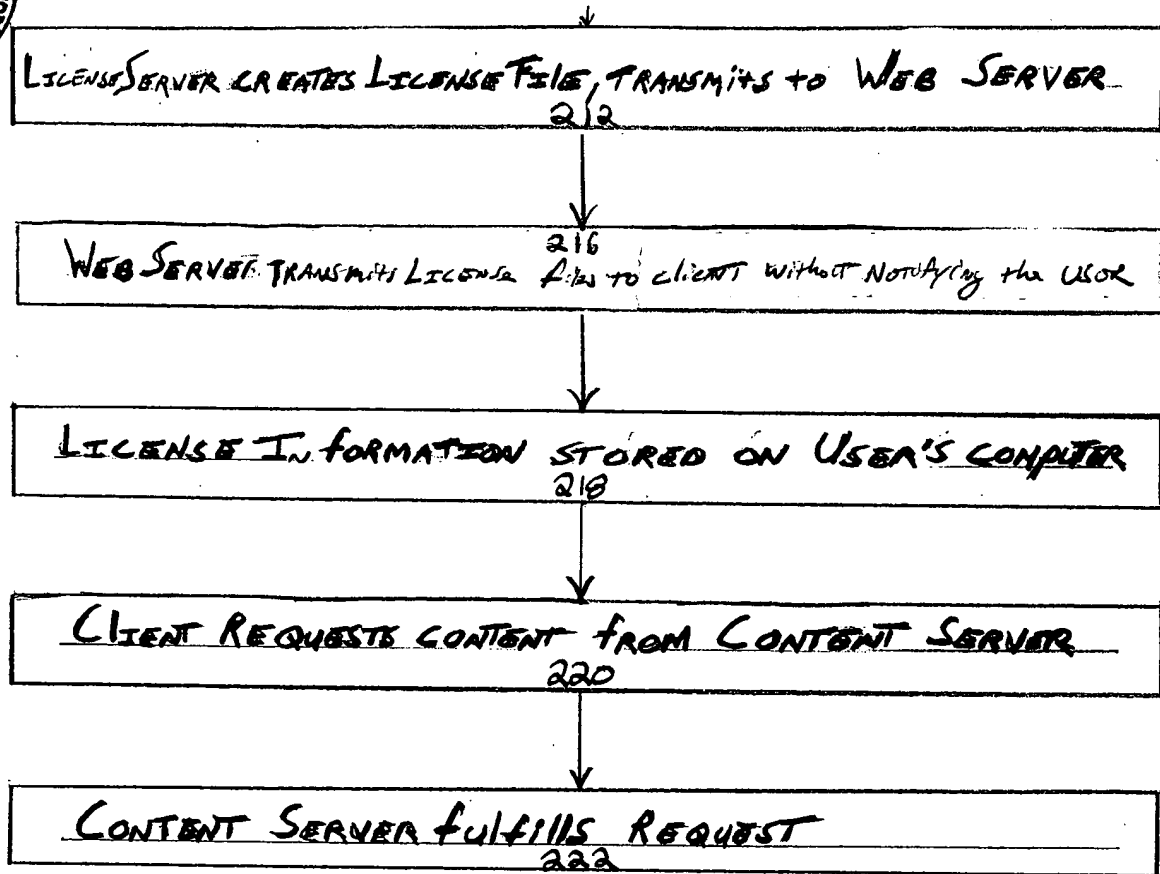 LICENSE SERVER CREATES LICENSE FILE, TRANSMITS to WEB SERVER
212
216
WEB SERVER TRANSMITS LICENSE files to CLIENT without NOTIFYING the USOR
LICENSE INFORMATION STORED ON USER'S COMPUTER
218
CLIENT REQUESTS CONTENT from CONTENT SERVER
220
CONTENT SERVER fulfills REQUEST
222